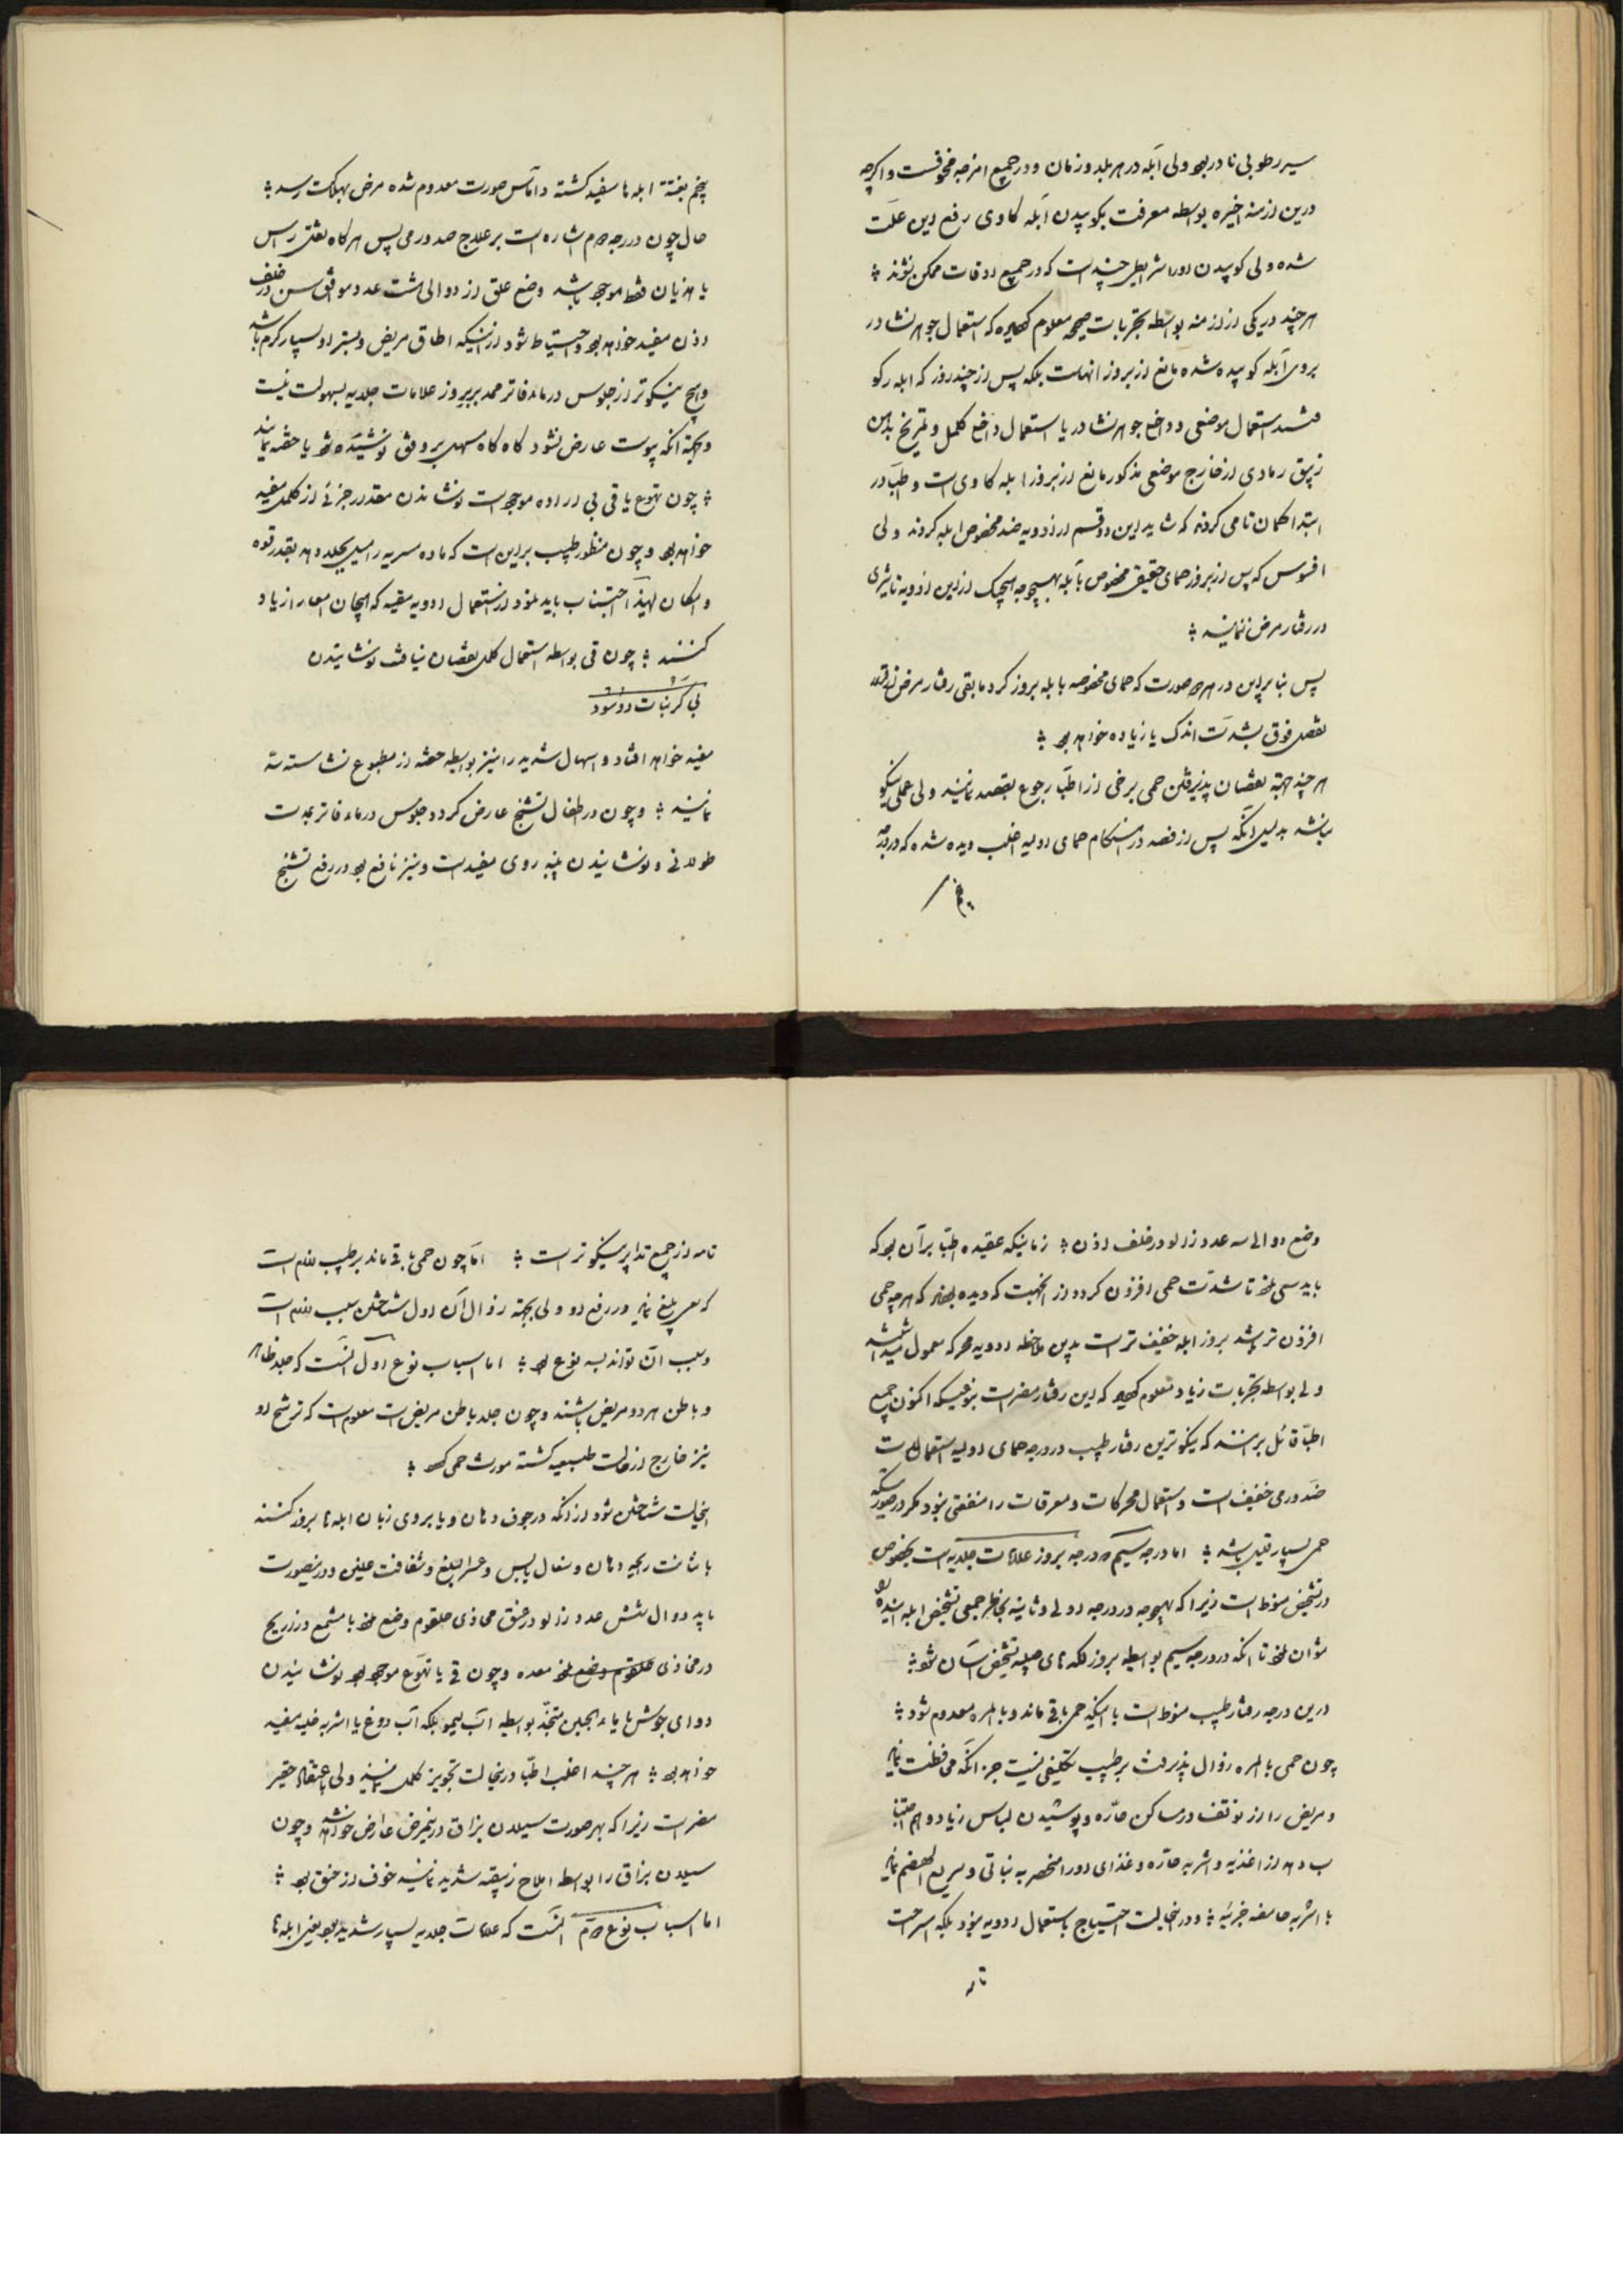 سیر رطوبی نادر بود ولی آبله در هر بلد و زمان و در جمیع امزجه مخوفست و اگرچه
درین ازمنه اخیره بواسطه معرفت بکوبیدن آبله کاوی رفع این علت
شده ولی کوبیدن اورا شرایطی چند است که در جمیع اوقات ممکن نشوند
هر چند در یکی از ازمنه بواسطه تجربات صحیحه معلوم که استعمال جوهر نشادر
بروی آبله کوبیده شده مانع از بروز انهاست بلکه پس از چند روز که ابله
استعمال موضعی جوهر نشادر یا استعمال داخل کلمل و تمریخ بدهن
زیبق رمادی از خارج موضعی مذکور مانع از بروز ابله کاوی است و اطبا در
ابتدا گمان تامی کردند که شاید این دو قسم از ادویه ضد مخصوص ابله گردند ولی
افسوس که پس از بروز حمای حقیقی مخصوص بآبله بهیچوجه هیچیک ازین ادویه تاثیری
در رفتار مرض ننمایند
پس بنابراین در هر صورت که حمای مخصوصه بابله بروز کرد مابقی رفتار مرض
بفصل فوق بشدت اندک یا زیاده خواهد بود
هر چند جهة نقصان پذیرفتن حمی برخی از اطبا رجوع بفصد نمایند ولی عملی نیکو
نباشد بدلیل آنکه پس از فصد در هنگام حمای اولیه اغلب دیده شده که در درجه
پنجم
پنجم بغتة ابله ها سفید گشته و اماس صورت معدوم شده مرض بهلاکت رسد
حال چون در درجه دوم اشاره است بر علاج صداورمی پس هرگاه ثقل راس
یا هذیان فقط موجود باشد وضع علق از دو الی هشت عدد موافق سن در خلف
اذن مفید خواهد بود و احتیاط شود ازینکه اطاق مریض و بستر او بسیار گرم باشد
و هیچ نیکوتر از جلوس در ماء فاتر ممد بر بروز علامات جلدیه بسهولت نیست
و بجهة انکه یبوست عارض نشود گاه گاه مسهل برودتی نوشیده شود یا حقنه نمایند
چون تهوع یا قی بی اراده موجود است نوشاندن مقدار جزئی از کلمل مفید
خواهد بود و چون منظور طبیب براین است که ماده مسریه را میل بجلد دهد بقدر قوه
و امکان لهذا اجتناب باید نمود از استعمال ادویه مقیه که هیجان امعا را زیاد
کنند چون قی بواسطه استعمال کلمل نقصان نیافت نوشانیدن
بی کربنات دو سود
مفید خواهد افتاد و اسهال شدید را نیز بواسطه حقنه از مطبوع نشاسته سد
نمایند و چون در اطفال تشنج عارض گردد جلوس در ماء فاتر بمدت
طولانی و نوشانیدن پنبه روی مفید است و نیز نافع بود در رفع تشنج
وضع دو الی سه عدد زالو در خلف اذن زمانیکه عقیده اطبا برآن بود که
باید سعی نمود تا شدت حمی افزون گردد از انجهت که دیده بودند که هرچه حمی
افزون تر باشد بروز ابله خفیف تر است بدین ملاحظه ادویه محرکه معمول میداشتند
ولی بواسطه تجربات زیاد معلوم که این رفتار مضر است بنوعیکه اکنون جمیع
اطبا قائل برانند که نیکوترین رفتار طبیب در درجه حمای اولیه استعمالات
ضدورمی خفیف است و استعمال محرکات و معرقات را منفعتی نبود مگر در صورتیکه
حمی بسیار قلیل باشد اما درجه سیم و درجه بروز علامات جلدیه است بخصوص
در تشخیص منوط است زیرا که بهیچوجه در درجه اولی و ثانیه بخاطر جمعی تشخیص ابله
توان نمود تا انکه در درجه سیم بواسطه بروز لکه های جلدیه تشخیص آسان شود
درین درجه رفتار طبیب منوط است باینکه حمی باقی ماند و یا بالمره معدوم شود
چون حمی بالمره زوال پذیرفت بر طبیب تکلیفی نیست جز آنکه محافظت نماید
و مریض را از توقف در مساکن حاره و پوشیدن لباس زیاد و هم اجتنا
ب دهد از اغذیه و اشربه حاره و غذای اورا منحصر به نباتی و سریع الهضم نماید
با اشربه حامضه جزئیه و در انحالت احتیاج باستعمال ادویه نبود بلکه استراحت
تامه
تامه از جمیع تدابیر نیکوتر است اما چون حمی باقی ماند بر طبیب لازم است
که سعی بلیغ نماید در رفع او ولی بجهة زوال آن اول شناختن سبب لازم است
و سبب آن تواند سه نوع بود اما اسباب نوع اول آنست که جلد ظاهر
و باطن هر دو مریض باشند و چون جلد باطن مریض است معلوم است که ترشح او
نیز خارج از حالت طبیعیه گشته مورث حمی
انحالت شناختن شود از انکه در جوف دهان و یا بروی زبان ابله ها بروز کنند
با نتانت رایحه دهان و سعال یابس و عسر البلع و درینصورت
باید دو الی شش عدد زالو در عنق محاذی حلقوم وضع نمود یا مشمع ذراریح
در محاذی معده و چون قی یا تهوع موجود بود نوشانیدن
دوای جوشش یا ماء الجبن متخذ بواسطه آب لیمو بلکه آب دوغ یا اشربه مفید
خواهد بود هر چند اغلب اطبا درینحالت تجویز کلمل نمایند ولی باعتقاد حقیر
مضر است زیرا که بهر صورت سیلان بزاق درینمرض عارض خواهد شد و چون
سیلان بزاق را بواسطه املاح زیبقیه شدید نمایند خوف از خنق بود
اما اسباب نوع دوم آنست که علامات جلدیه بسیار شدید بود یعنی ابله ها